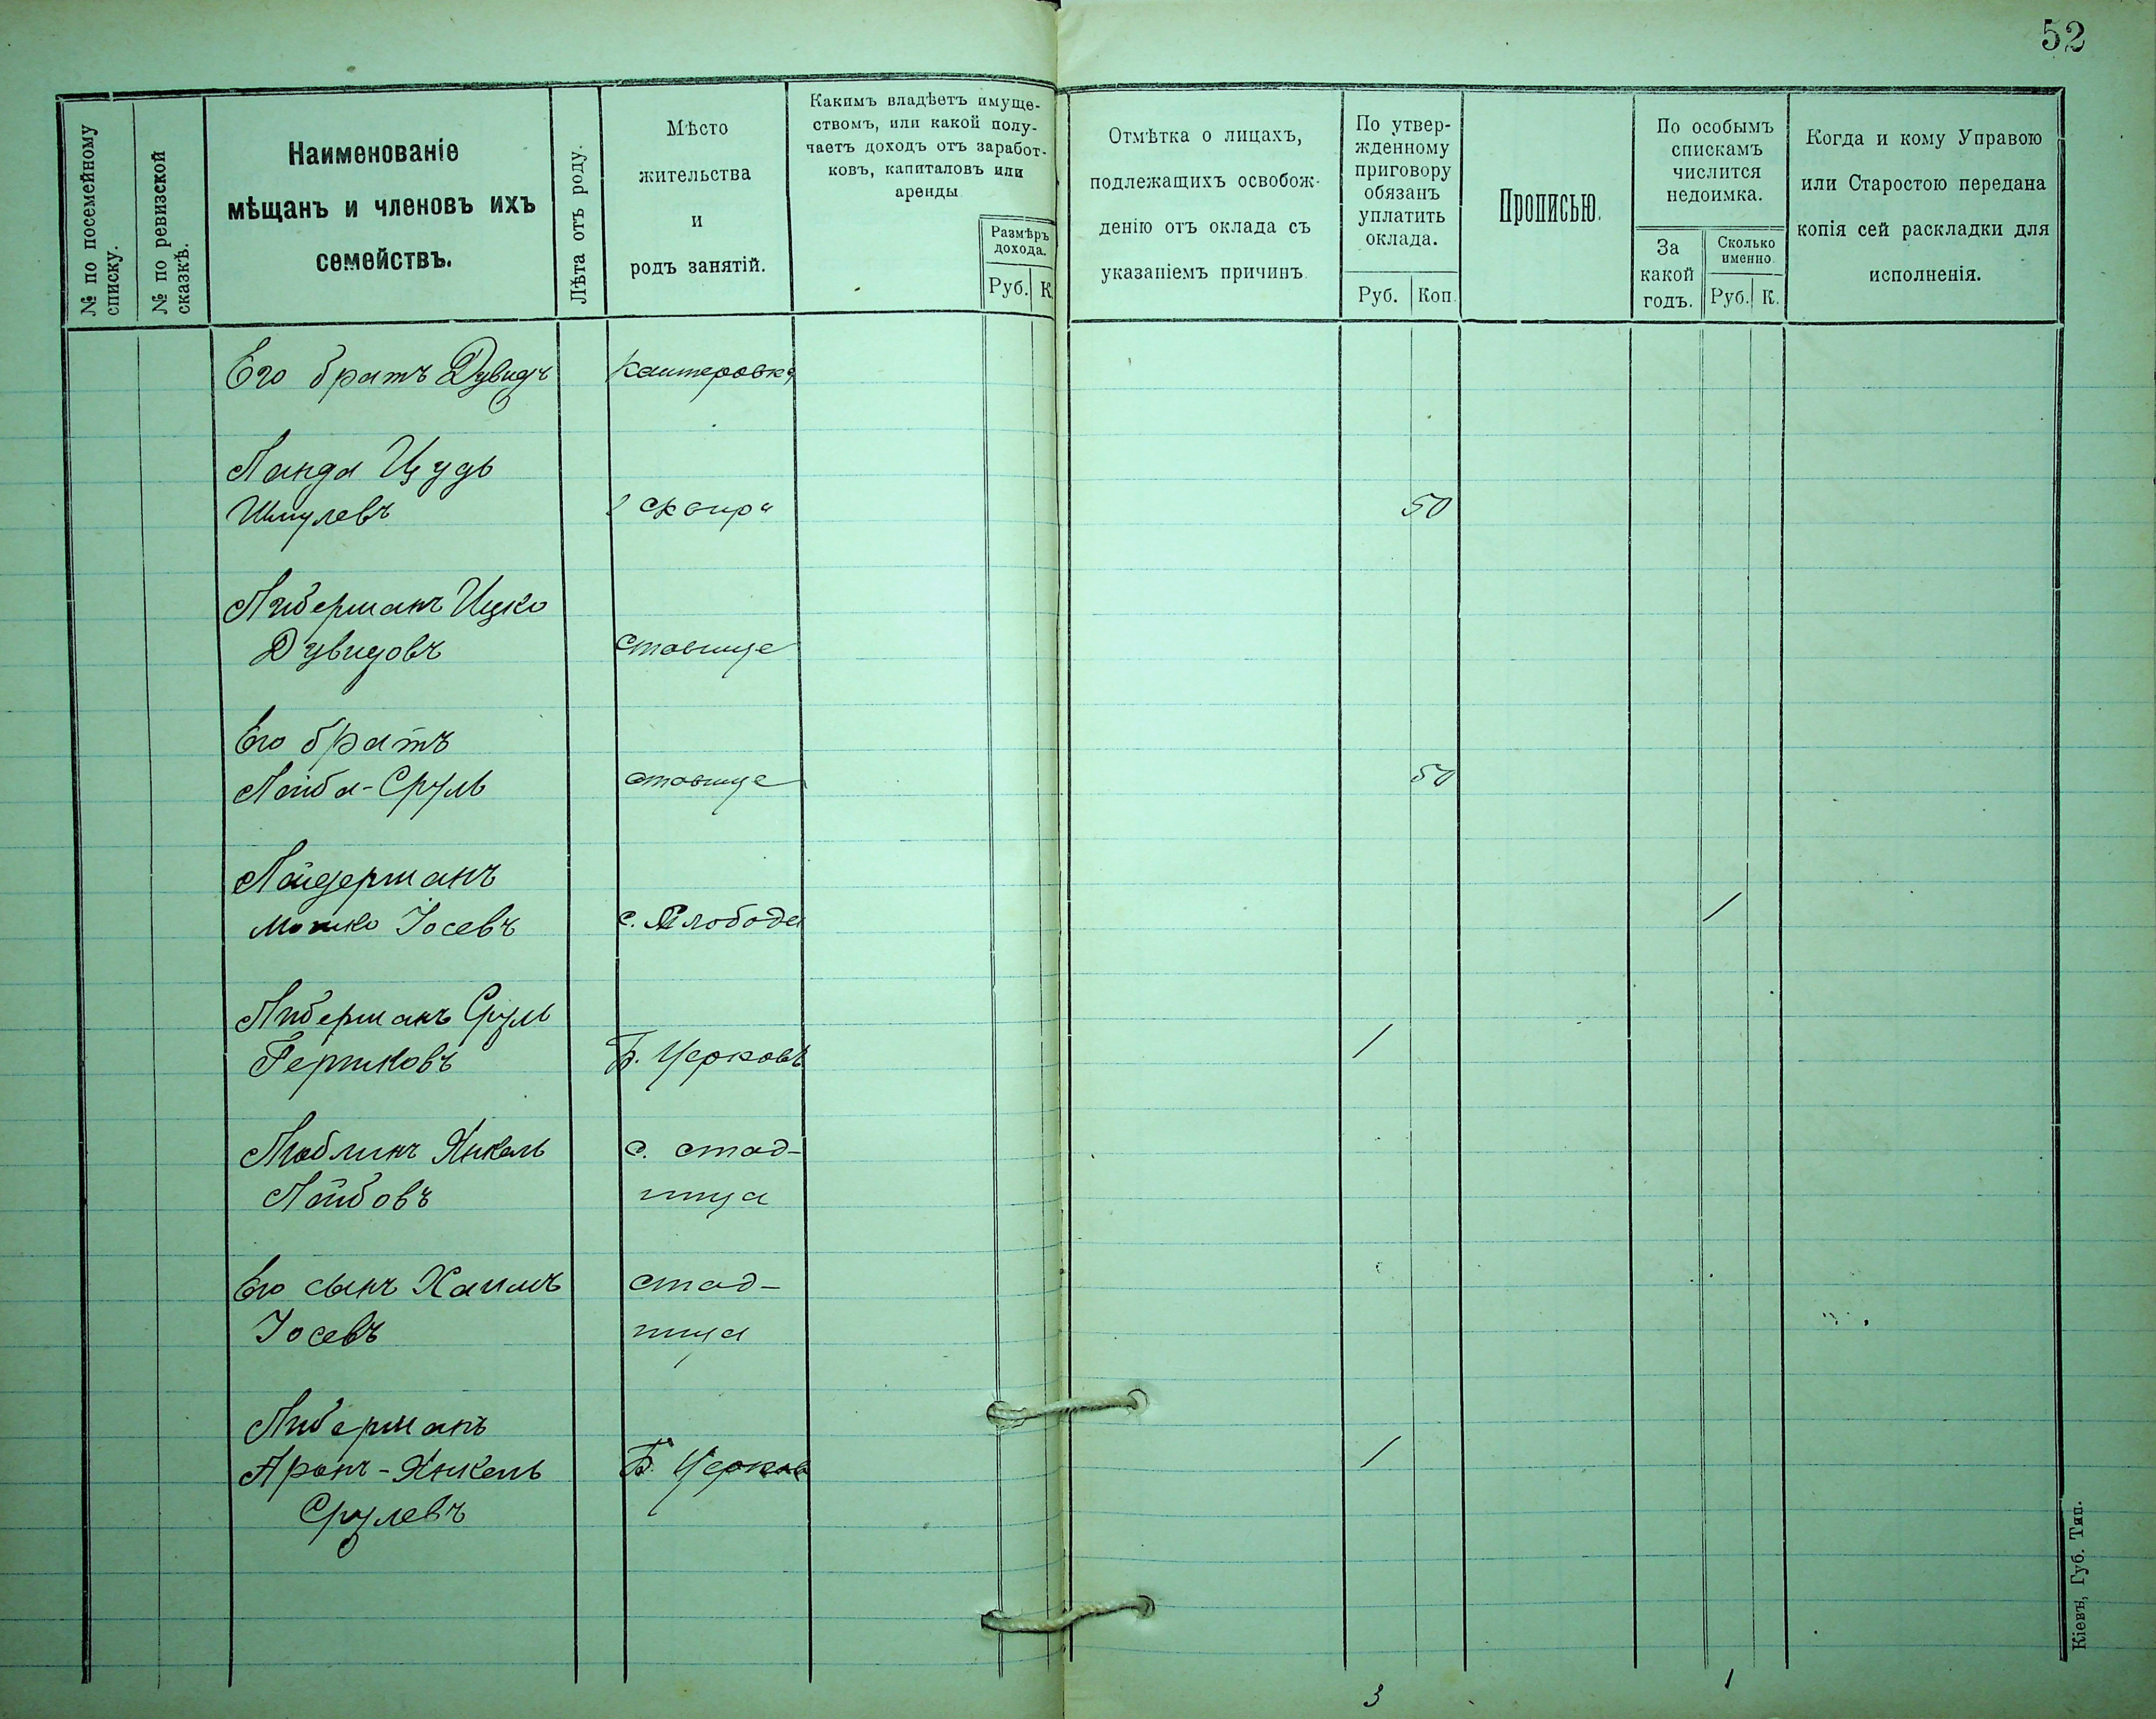 52
№ по посемейному списку.
№ по ревизской сказкѣ.
Наименованіе
мѣщанъ и членовъ ихъ
семействъ.
Лѣта отъ роду.
Мѣсто
жительства
и
родъ занятій.
Какимъ владѣетъ имуще-
ствомъ, или какой полу-
чаетъ доходъ отъ заработ-
ковъ, капиталовъ или
аренды
Размѣръ
дохода.
Руб. К.
Отмѣтка о лицахъ,
подлежащихъ освобож-
денію отъ оклада съ
указаніемъ причинъ
По утвер-
жденному
приговору
обязанъ
уплатить
оклада.
Руб. Коп.
Прописью.
По особымъ
спискамъ
числится
недоимка.
За
какой
годъ.
Сколько
именно
Руб. К.
Когда и кому Управою
или Старостою передана
копія сей раскладки для
исполненія.
Его братъ Дувидъ Каштеровка
Ланда Цудь
Шмулевъ г Сквира 50
Либерманъ Ицко
Дувидовъ Ставище
Его братъ
Лейба-Сруль ставище 50
Лайдерманъ
Мошко Іосевъ с. Слобода 1
Либерманъ Сруль
Гершковъ Б. Церковь 1
Люблинъ Янкель с. стад-
Лейбовъ ница
Его сынъ Хаимъ стад-
Іосевъ ница
Либерманъ
Аронъ-Янкель Б. Церковь 1
Срулевъ
3 1
Кіевъ, Губ. Тип.